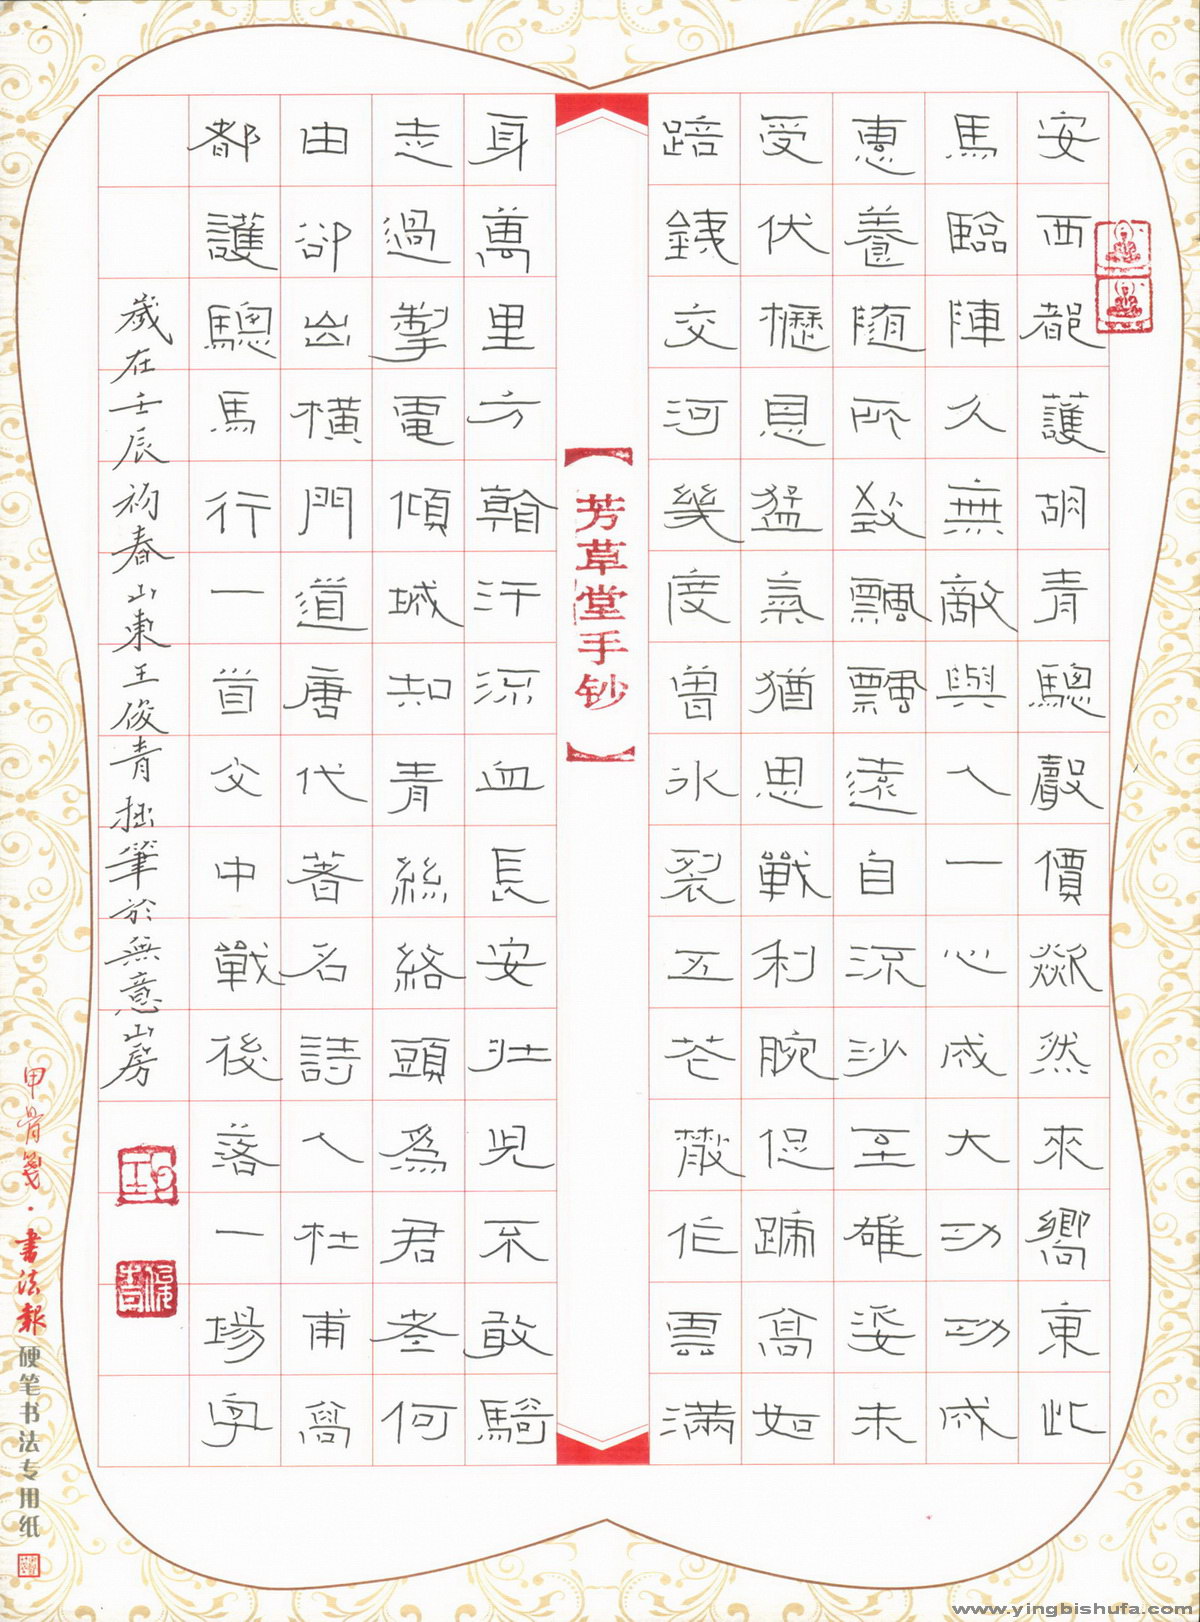 安西都護胡青驄聲價歘然來嚮東此
馬臨陣久無敵與人一心成大功功成
惠養隨所致飄飄遠自流沙至雄姿未
受伏櫪恩猛氣猶思戰利腕促蹄高如
踣鐵交河幾度曾冰裂五花散作雲滿
【芳草堂手钞】
身萬里方看汗流血長安壯兒不敢騎
走過掣電傾城知青絲絡頭為君老何
由卻出橫門道唐代著名詩人杜甫高
都護驄馬行一首文中戰後落一場字
歲在壬辰初春山東王俊青拙筆於無意山房
甲骨笺·書法報硬笔书法专用纸
www.yingbishufa.com